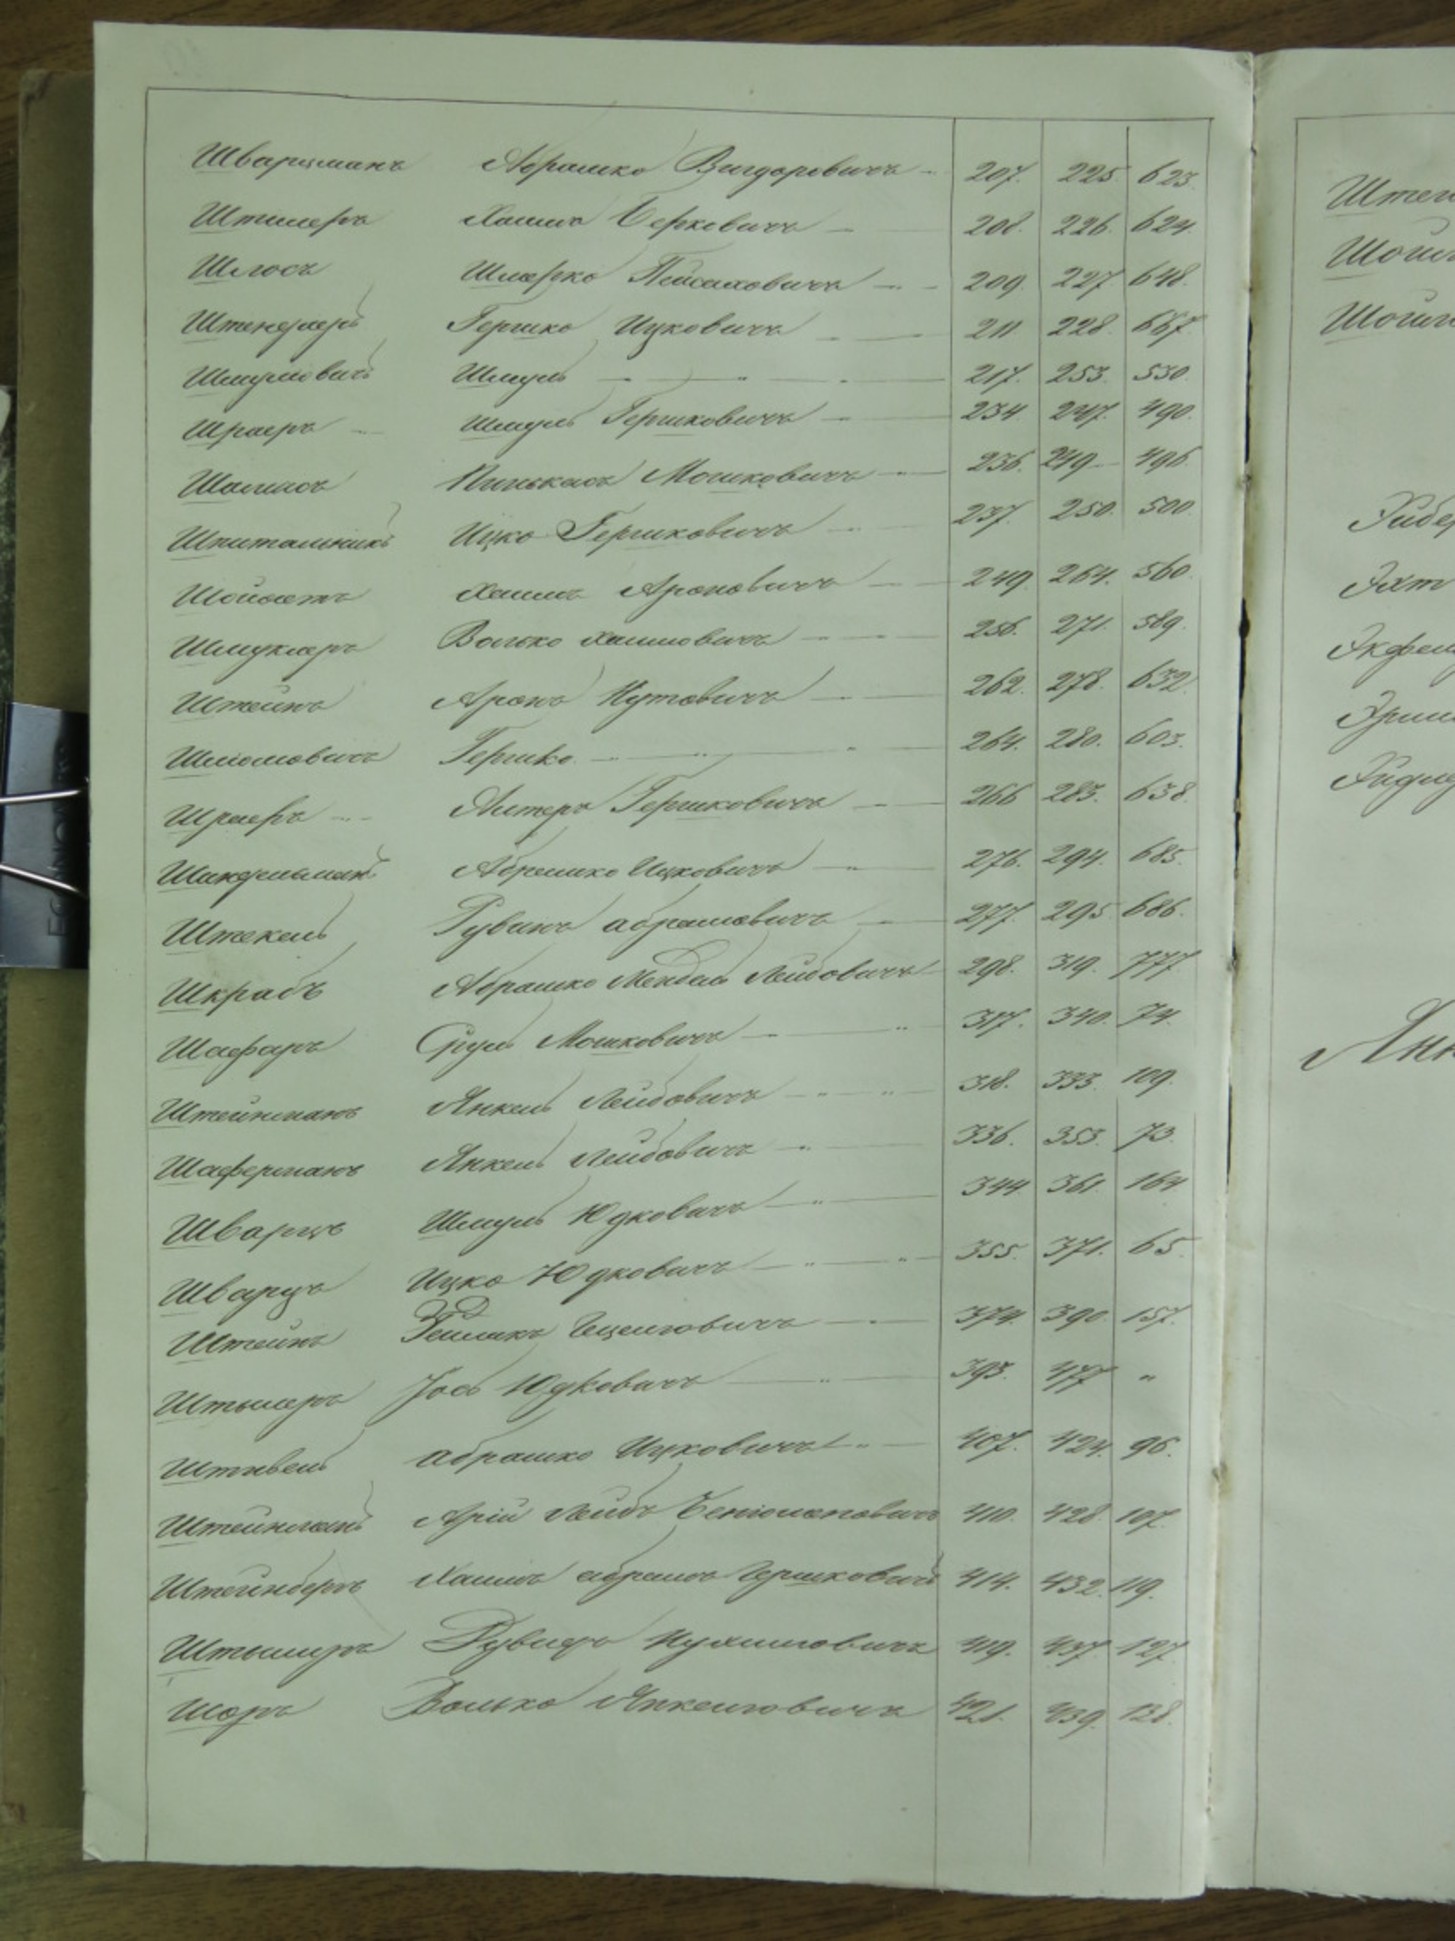 Шварцманъ Абрашко Вигдоровичъ 207. 225. 623.
Штилеръ Хаимъ Берковичъ 208. 226. 624.
Шлосъ Шмерко Пейсаховичъ 209. 227. 648.
Штендлеръ Гершко Ицковичъ 211. 228. 667.
Шмуловичъ Шмуль " 217. 253. 530.
Шраеръ Шмуль Гершковичъ 234. 247. 490.
Шаписъ Пинькасъ Мошковичъ 236. 249 496.
Шпитальникъ Ицко Гершковичъ 237. 250. 500.
Шойхетъ Хаимъ Ароновичъ 249. 264. 560.
Шмуклеръ Волько Хаимовичъ 256. 271. 589.
Штейнъ Аронъ Нутовичъ 262. 278. 632.
Шліомовичъ Гершко. " " 264. 280. 603.
Шраеръ Алтеръ Гершковичъ 266 283. 638.
Абрашко Ицковичъ 276. 294. 685.
Штекель Рувинъ Абрамовичъ 277. 295. 686.
Шкрабъ Абрашко Мендель Лейбовичъ 298. 319. 777.
Шафаръ Сруль Мошковичъ 317. 340. 74.
Штейнманъ Янкель Лейбовичъ 318. 333. 109.
Шаферманъ Янкель Лейбовичъ 336. 353. 73.
Шварцъ Шмуль Юдковичъ 344. 361. 164
Шварцъ Ицко Юдковичъ 355. 371. 65.
Штейнъ Зейликъ 374. 390. 157.
Штылеръ Іосъ Юдковичъ 393. 477 "
Штивель Абрашко Ицковичъ 407. 424. 96.
Штейнманъ Арій Лейбъ Беніоминовичъ 410. 428. 107.
Штейнбергъ Хаимъ Абрамъ Гершковичъ 414. 432. 119.
Штылеръ Рувидъ Нухимовичъ 419. 437 127.
Шоръ Волько Янкелевичъ 421. 439. 128.